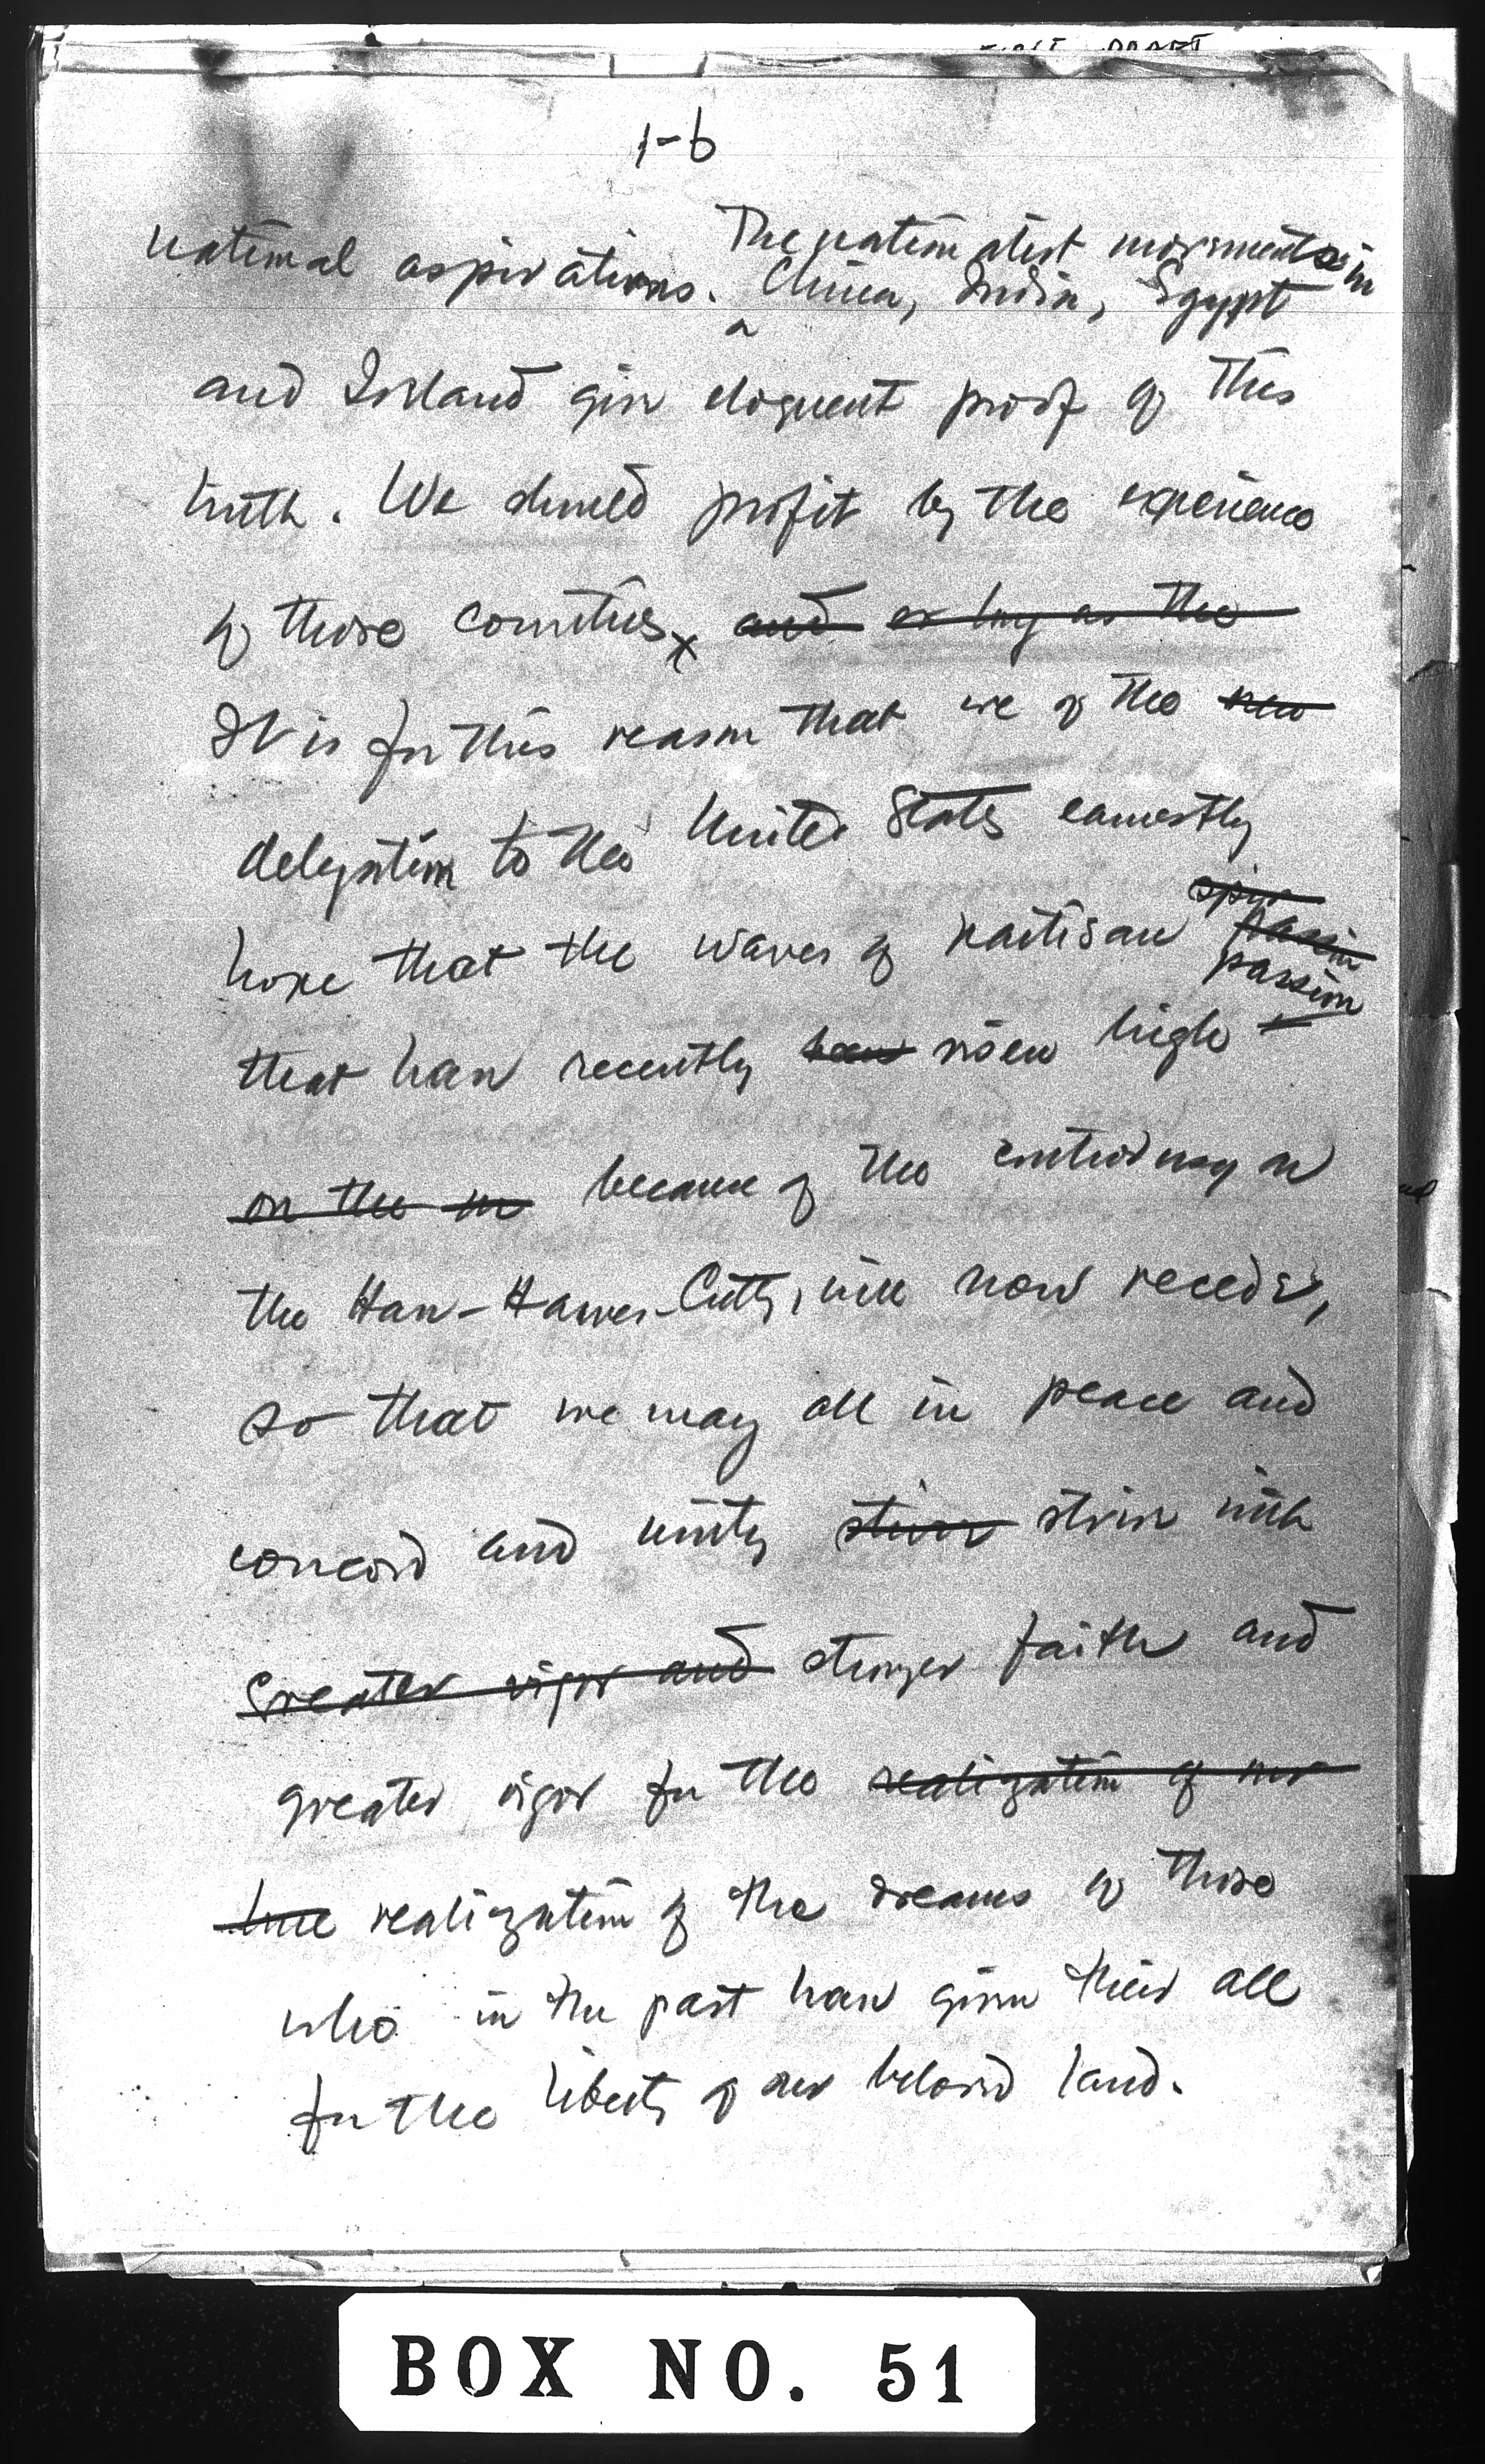 DRAFT
1-b
The nationalist movements in
national aspirations. China, India, Egypt
and Ireland give eloquent proof of this
truth. We should profit by the experience
of those countries and as long as the
It is for this reason that we of the new
delegation to the United States earnestly
spir
hope that the waves of partisan passion
passion
that have recently been risen high
on the in because of the controversy on
the Hare-Hawes-Cutts, will now recede,
so that we may all in peace and
concord and unity strive strive with
greater vigor and stronger faith and
greater vigor for the realization of our
realization of the dreams of those
who in the past have given their all
for the liberty of our beloved land.
BOX NO. 51